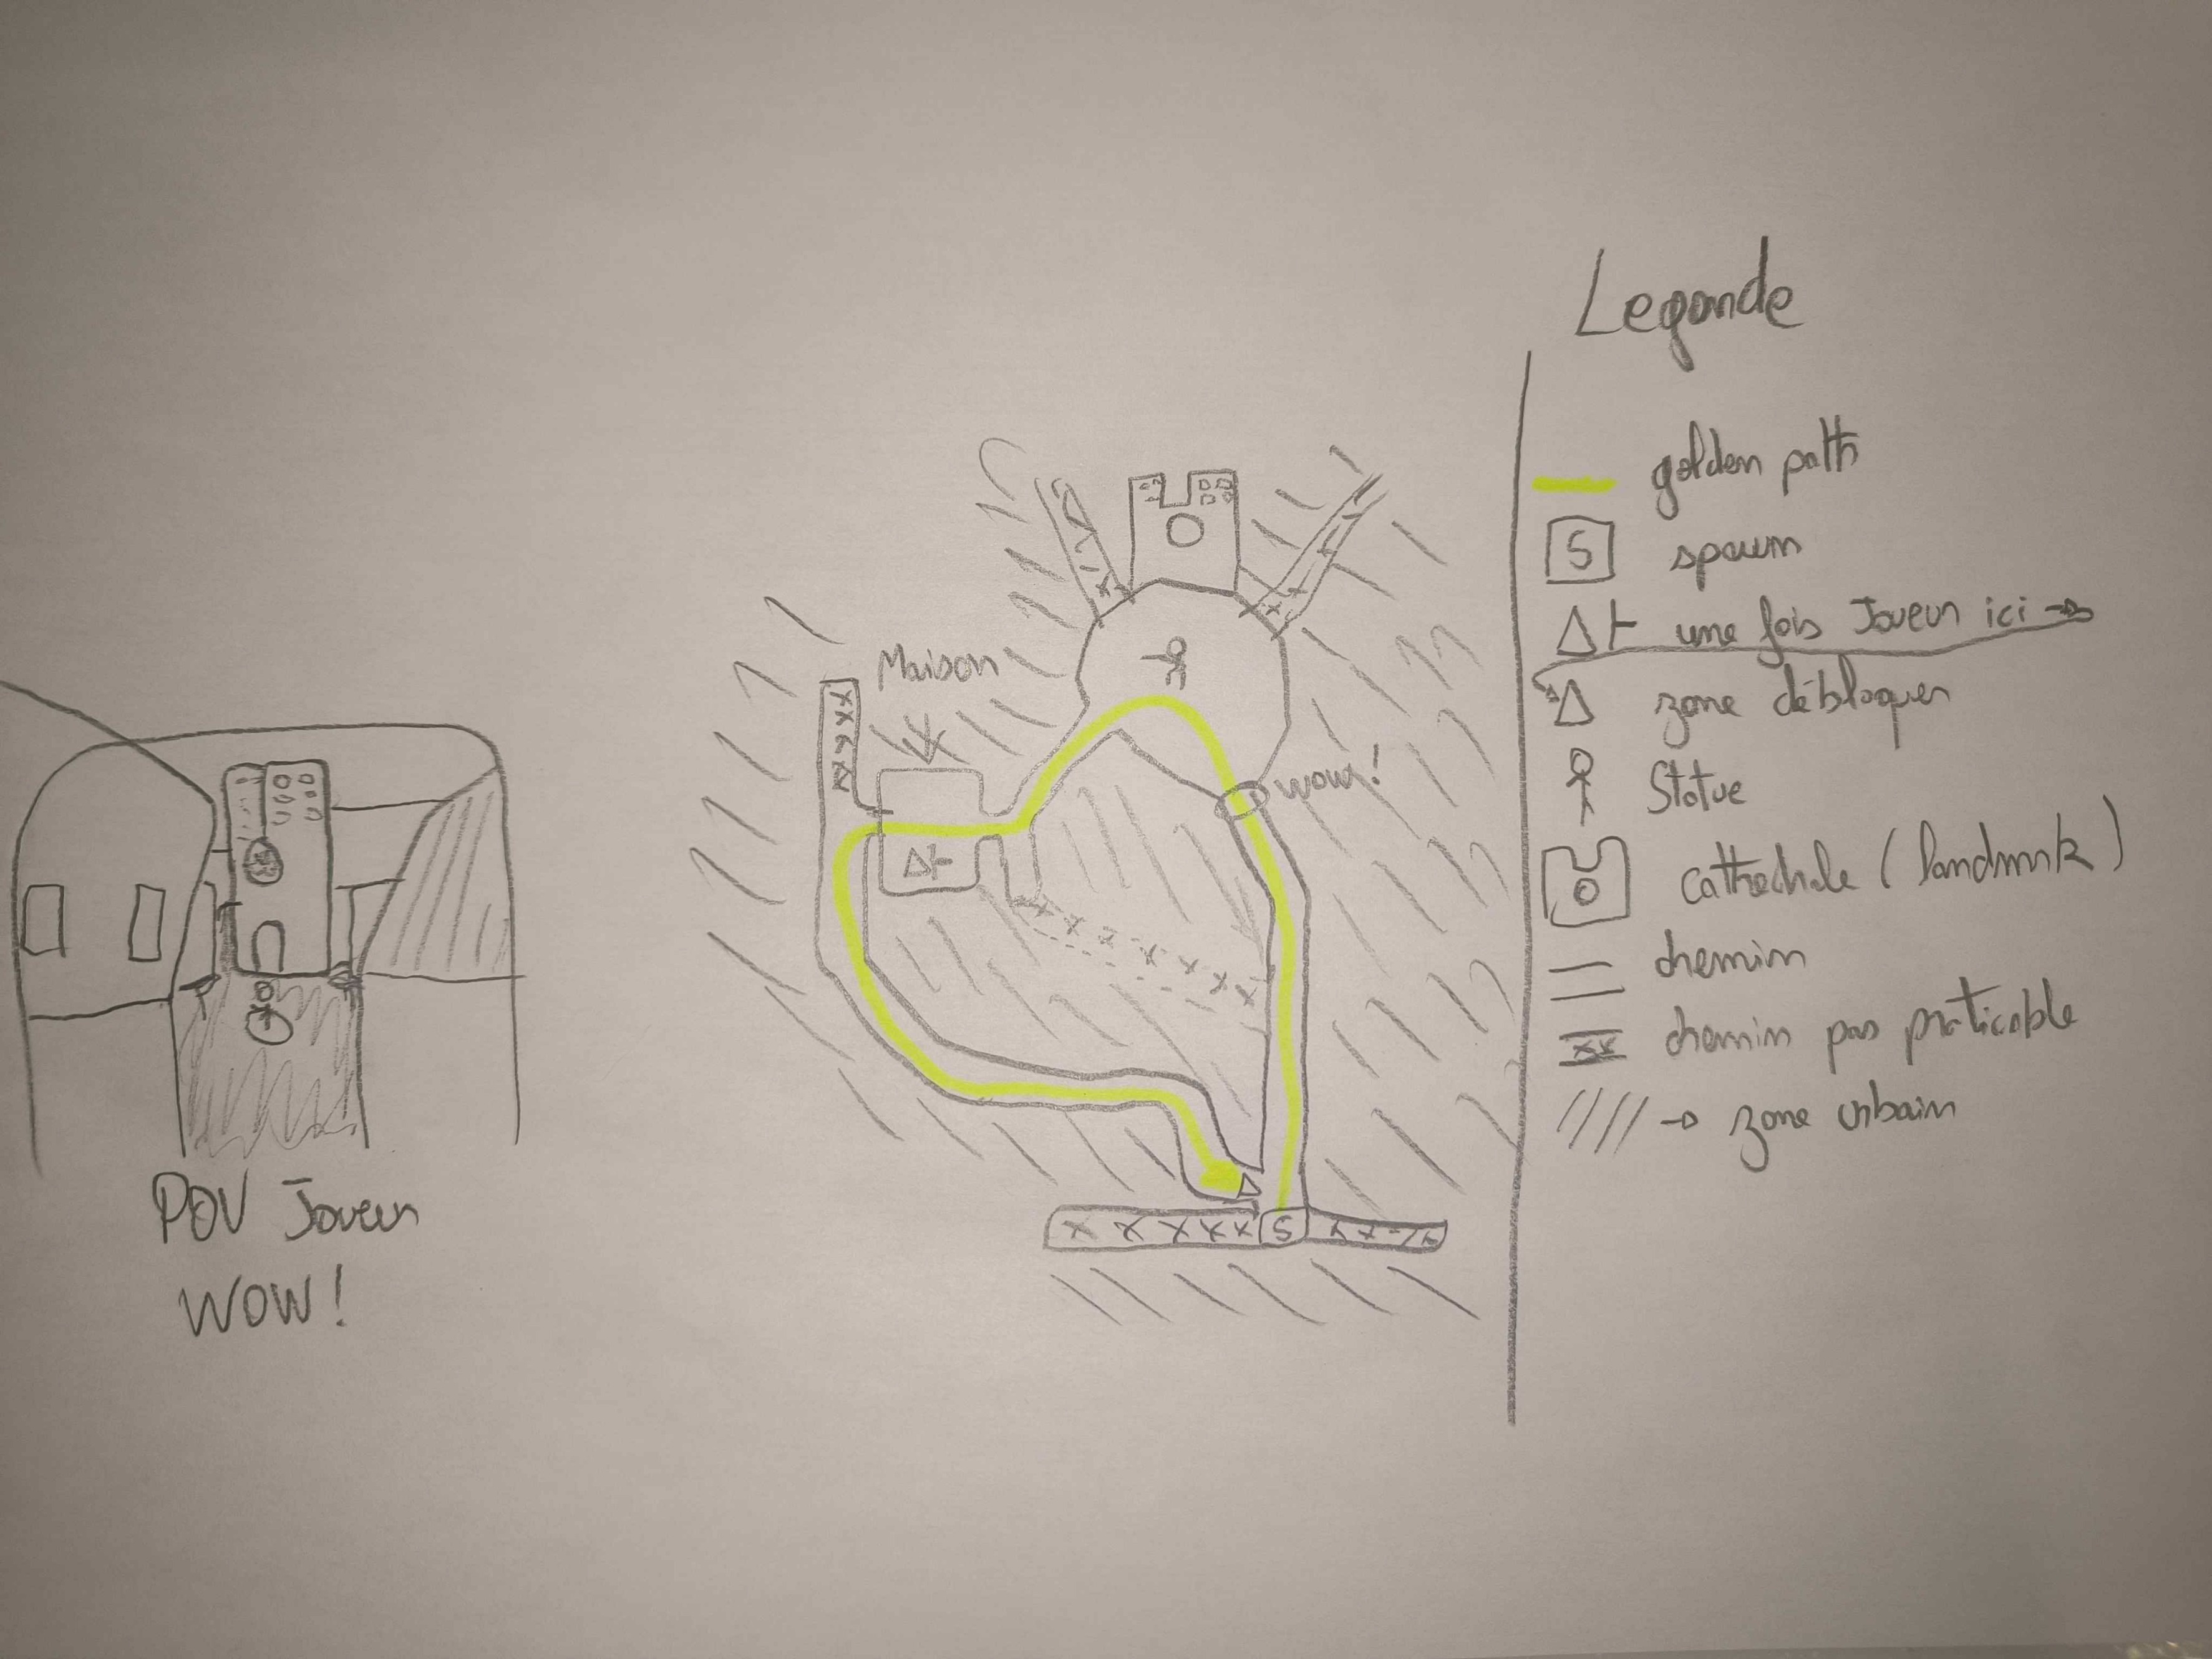 Legende
golden path
S spawn
△⊢ une fois Joueur ici →
△ zone débloquer
Statue
cathedrale ( landmrk )
chemin
xx chemin pas praticable
//// → zone urbain
Maison
△⊢
wow!
△
x x x x x S x x - x
POV Joueur
WOW!